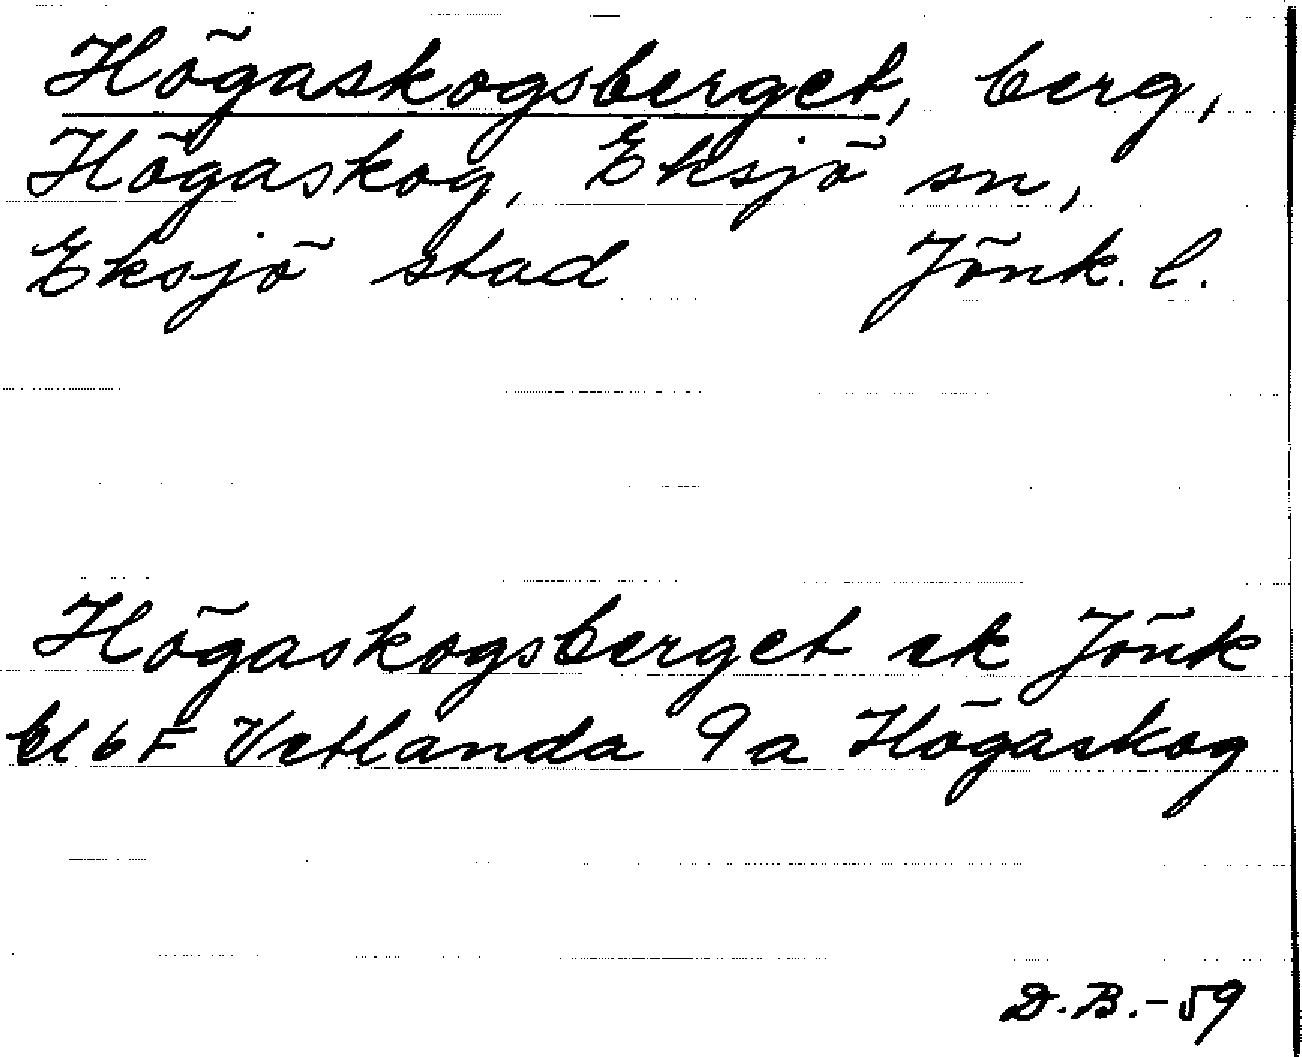 Högaskogsberget, berg,
Högaskog, Eksjö sn,
Eksjö stad Jönk. l.
Högaskogsberget ek Jönk
E16F Vetlanda 9a Högaskog
D.B.-59